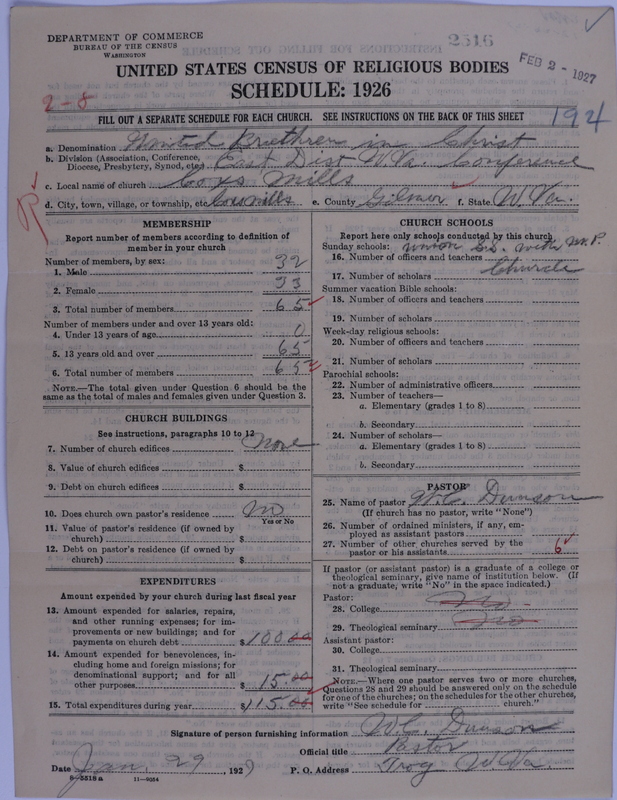 DEPARTMENT OF COMMERCE
BUREAU OF THE CENSUS
WASHINGTON
2516
FEB 2 - 1927
UNITED STATES CENSUS OF RELIGIOUS BODIES
SCHEDULE: 1926
2-8
194
FILL OUT A SEPARATE SCHEDULE FOR EACH CHURCH. SEE INSTRUCTIONS ON THE BACK OF THIS SHEET
a. Denomination United Brethren in Christ
b. Division (Association, Conference, Diocese, Presbytery, Synod, etc.) East Dist W.Va. Conference
c. Local name of church Coxs Mills
d. City, town, village, or township, etc. Cox Mills e. County Gilmer f. State W. Va.
R
MEMBERSHIP
Report number of members according to definition of member in your church
Number of members, by sex:
1. Male 32
2. Female 33
3. Total number of members 65
Number of members under and over 13 years old:
4. Under 13 years of age 0
5. 13 years old and over 65
6. Total number of members 65
NOTE.—The total given under Question 6 should be the same as the total of males and females given under Question 3.
CHURCH BUILDINGS
See instructions, paragraphs 10 to 12
7. Number of church edifices None
8. Value of church edifices $
9. Debt on church edifices $
10. Does church own pastor's residence No
Yes or No
11. Value of pastor's residence (if owned by church) $
12. Debt on pastor's residence (if owned by church) $
EXPENDITURES
Amount expended by your church during last fiscal year
13. Amount expended for salaries, repairs, and other running expenses; for improvements or new buildings; and for payments on church debt $100.00
14. Amount expended for benevolences, including home and foreign missions; for denominational support; and for all other purposes $15.00
15. Total expenditures during year $115.00
CHURCH SCHOOLS
Report here only schools conducted by this church
Sunday schools: Union S.S. with M.P.
16. Number of officers and teachers Church
17. Number of scholars
Summer vacation Bible schools:
18. Number of officers and teachers
19. Number of scholars
Week-day religious schools:
20. Number of officers and teachers
21. Number of scholars
Parochial schools:
22. Number of administrative officers
23. Number of teachers—
a. Elementary (grades 1 to 8)
b. Secondary
24. Number of scholars—
a. Elementary (grades 1 to 8)
b. Secondary
PASTOR
25. Name of pastor W.C. Dunson
(If church has no pastor, write "None")
26. Number of ordained ministers, if any, employed as assistant pastors
27. Number of other churches served by the pastor or his assistants 6
If pastor (or assistant pastor) is a graduate of a college or theological seminary, give name of institution below. (If not a graduate, write "No" in the space indicated.)
Pastor:
28. College No
29. Theological seminary No
Assistant pastor:
30. College
31. Theological seminary
NOTE.—Where one pastor serves two or more churches, Questions 28 and 29 should be answered only on the schedule for one of the churches; on the schedules for the other churches, write "See schedule for church."
Signature of person furnishing information W.C. Dunson
Official title Pastor
Date Jan. 29 1927 P. O. Address Troy W.Va.
8-5518a 11-9054